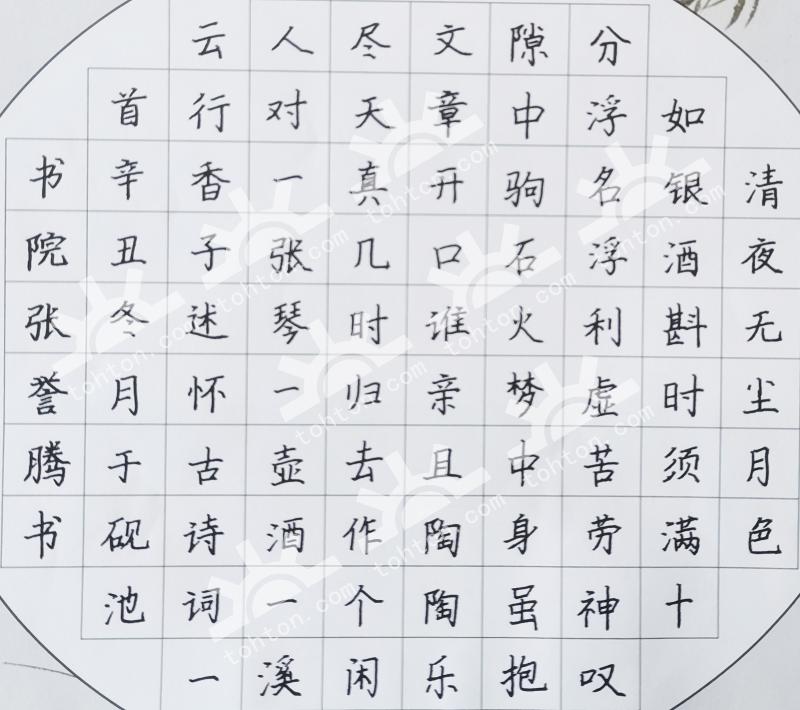 清夜无尘月色
如银酒斟时须满十
分浮名浮利虚苦劳神叹
隙中驹石火梦中身虽抱
文章开口谁亲且陶陶乐
尽天真几时归去作个闲
人对一张琴一壶酒一溪
云行香子述怀古诗词一
首辛丑冬月于砚池
书院张誉腾书
tohton.com
tohton.com
tohton.com
tohton.com
tohton.com
tohton.com
tohton.com
tohton.com